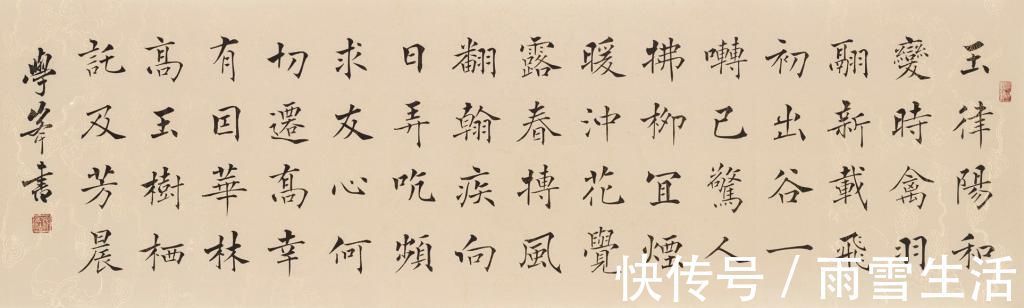 玉律陽和
變時禽羽
翮新載飛
初出谷一
囀已驚人
拂柳宜煙
暖沖花覺
露春搏風
翻翰疾向
日弄吭頻
求友心何
切遷高幸
有因華林
高玉樹栖
託及芳晨
學峯書
快传号 / 雨雪生活